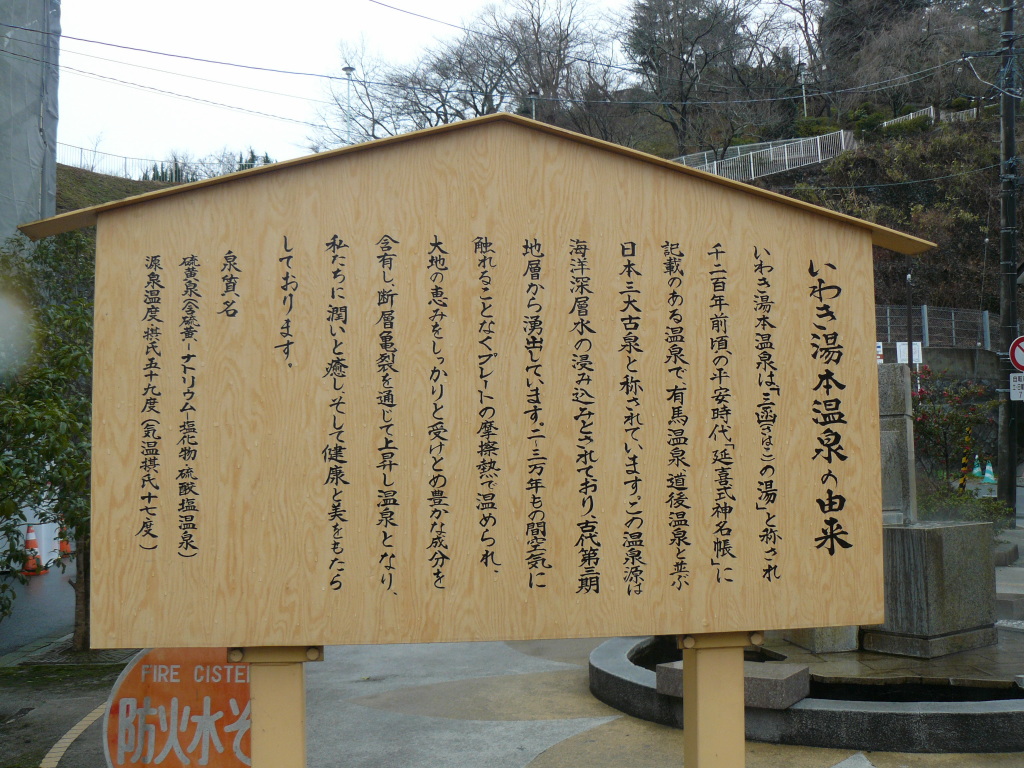 いわき湯本温泉の由来
いわき湯本温泉は「三函(さはこ)の湯」と称され
千二百年前頃の平安時代、「延喜式神名帳」に
記載のある温泉で、有馬温泉、道後温泉と並ぶ
日本三大古泉と称されています。この温泉源は
海洋深層水の浸み込みとされており、古代第三期
地層から湧出しています。二・三万年もの間空気に
触れることなくプレートの摩擦熱で温められ、
大地の恵みをしっかりと受けとめ豊かな成分を
含有し、断層亀裂を通じて上昇し温泉となり、
私たちに潤いと癒し、そして健康と美をもたら
しております。
泉質名
硫黄泉(含硫黄ーナトリウムー塩化物 硫酸塩温泉)
源泉温度・摂氏五十九度(気温摂氏十七度)
FIRE CISTE
防火水そ